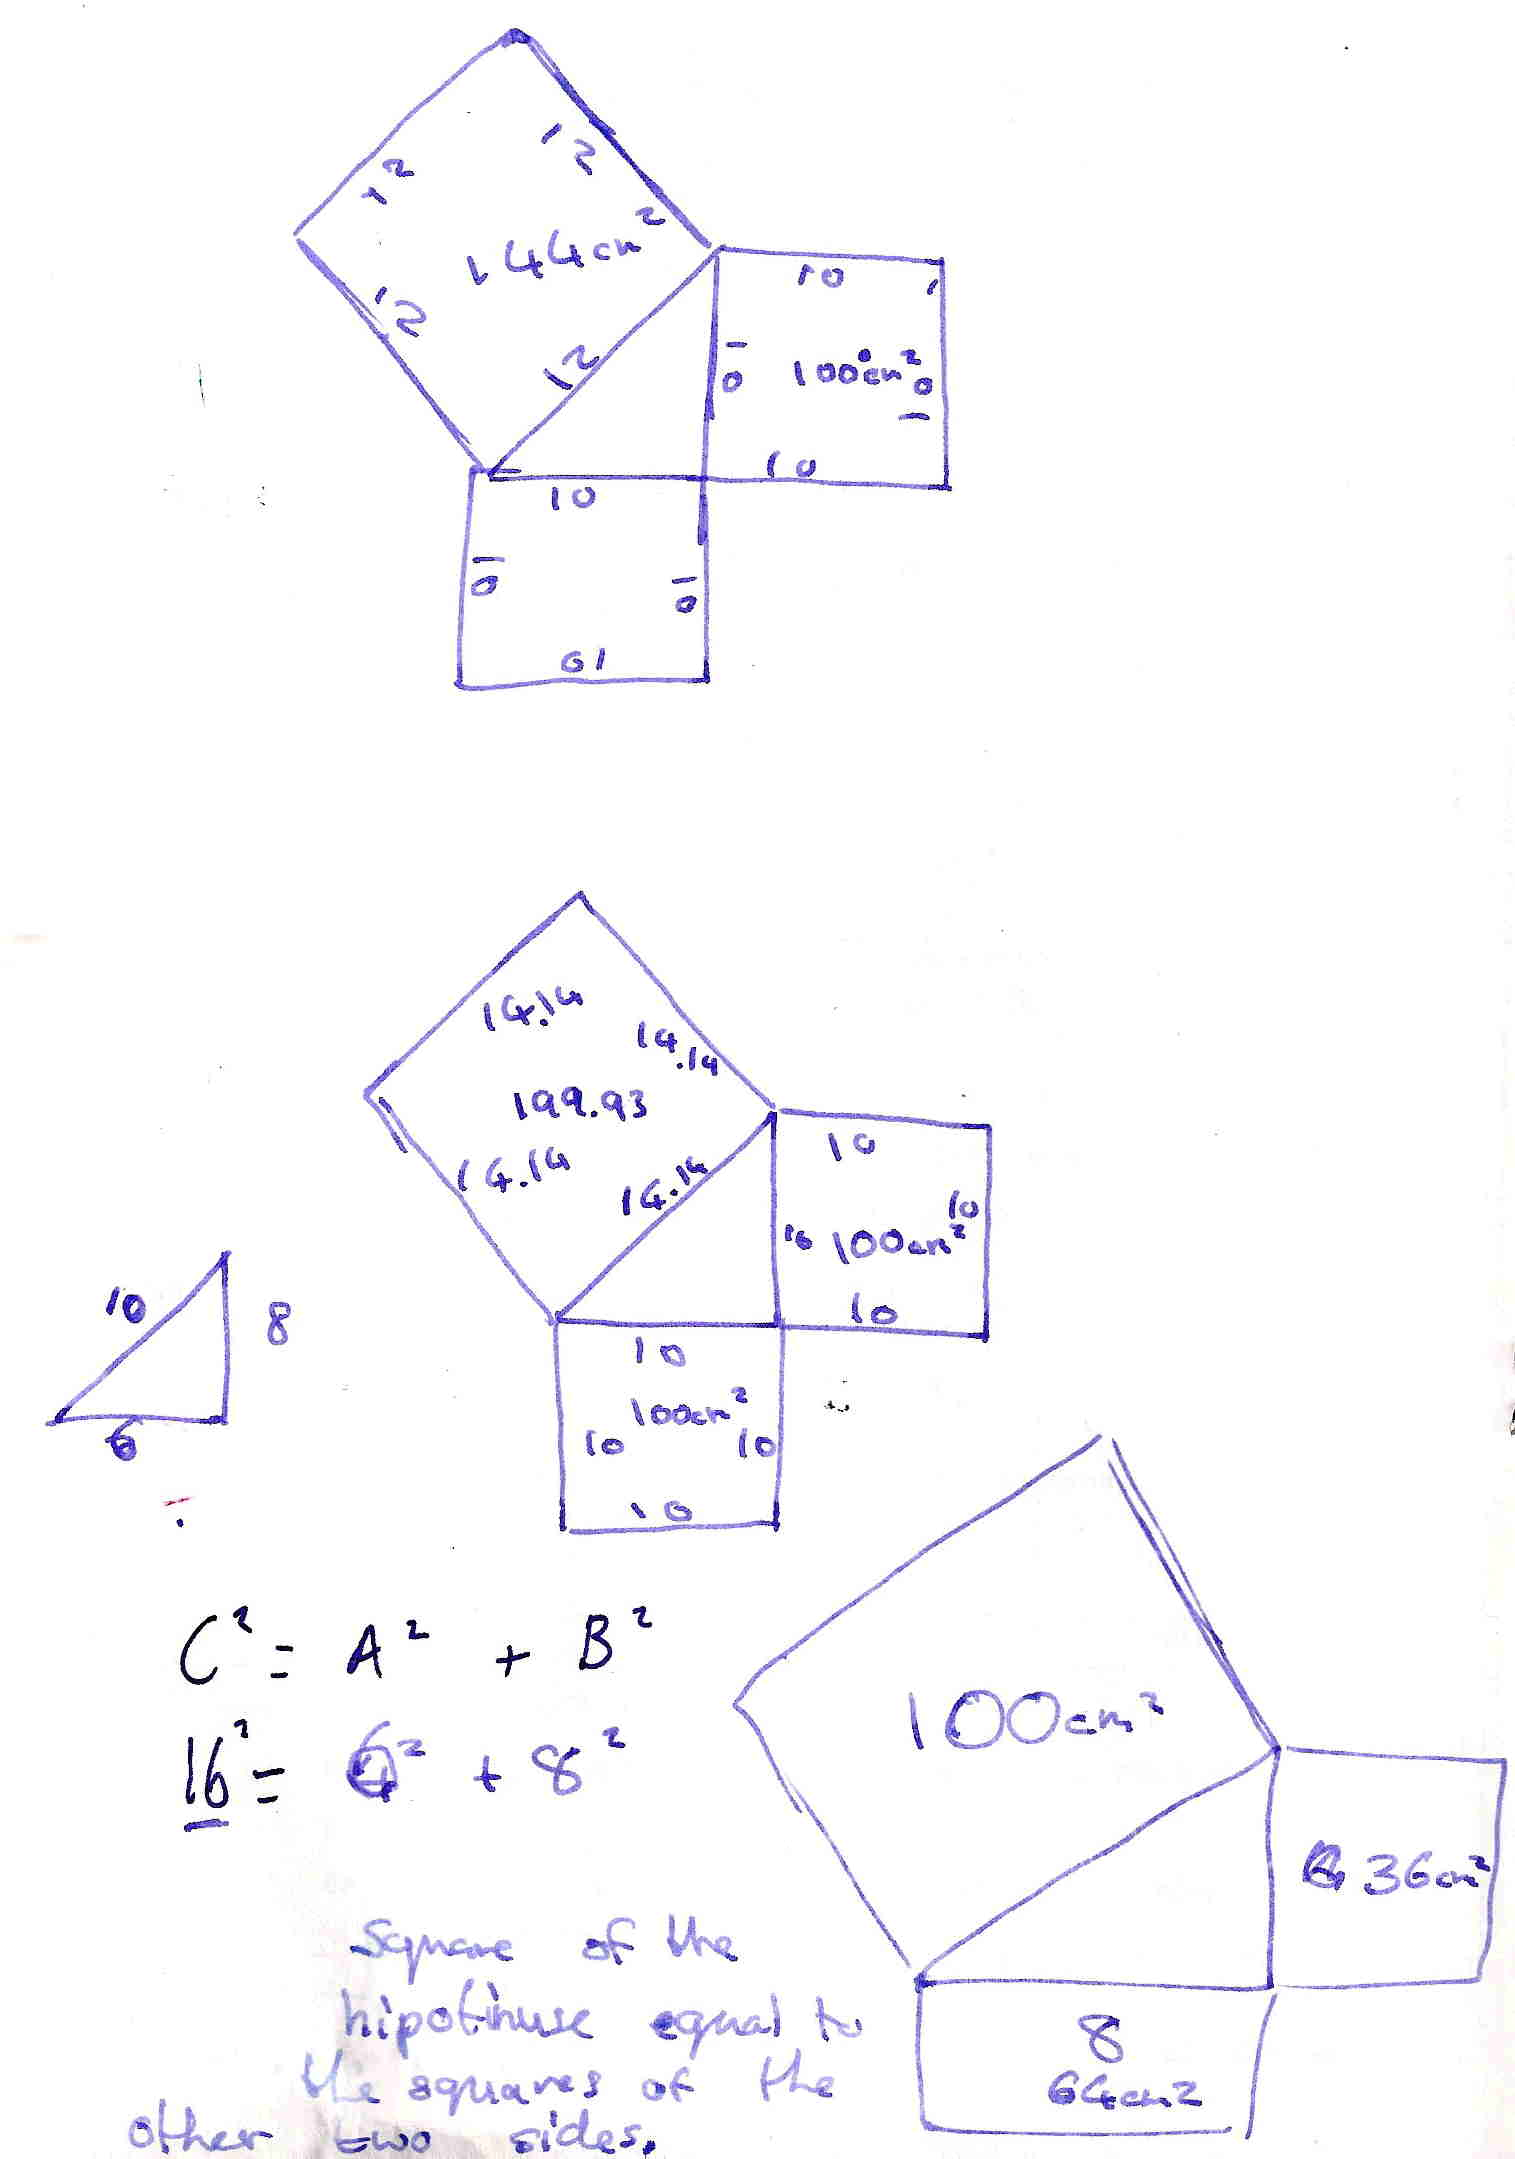 12
12
144cm²
12
12
10
10
100cm²
10
10
10
10
10
10
14.14
14.14
199.93
14.14
14.14
10
10
10
100cm²
10
10
100cm²
10
10
10
10
8
6
C² = A² + B²
16² = 6² + 8²
100cm²
36cm²
8
64cm2
Square of the
hipotinuse equal to
the squares of the
other two sides.